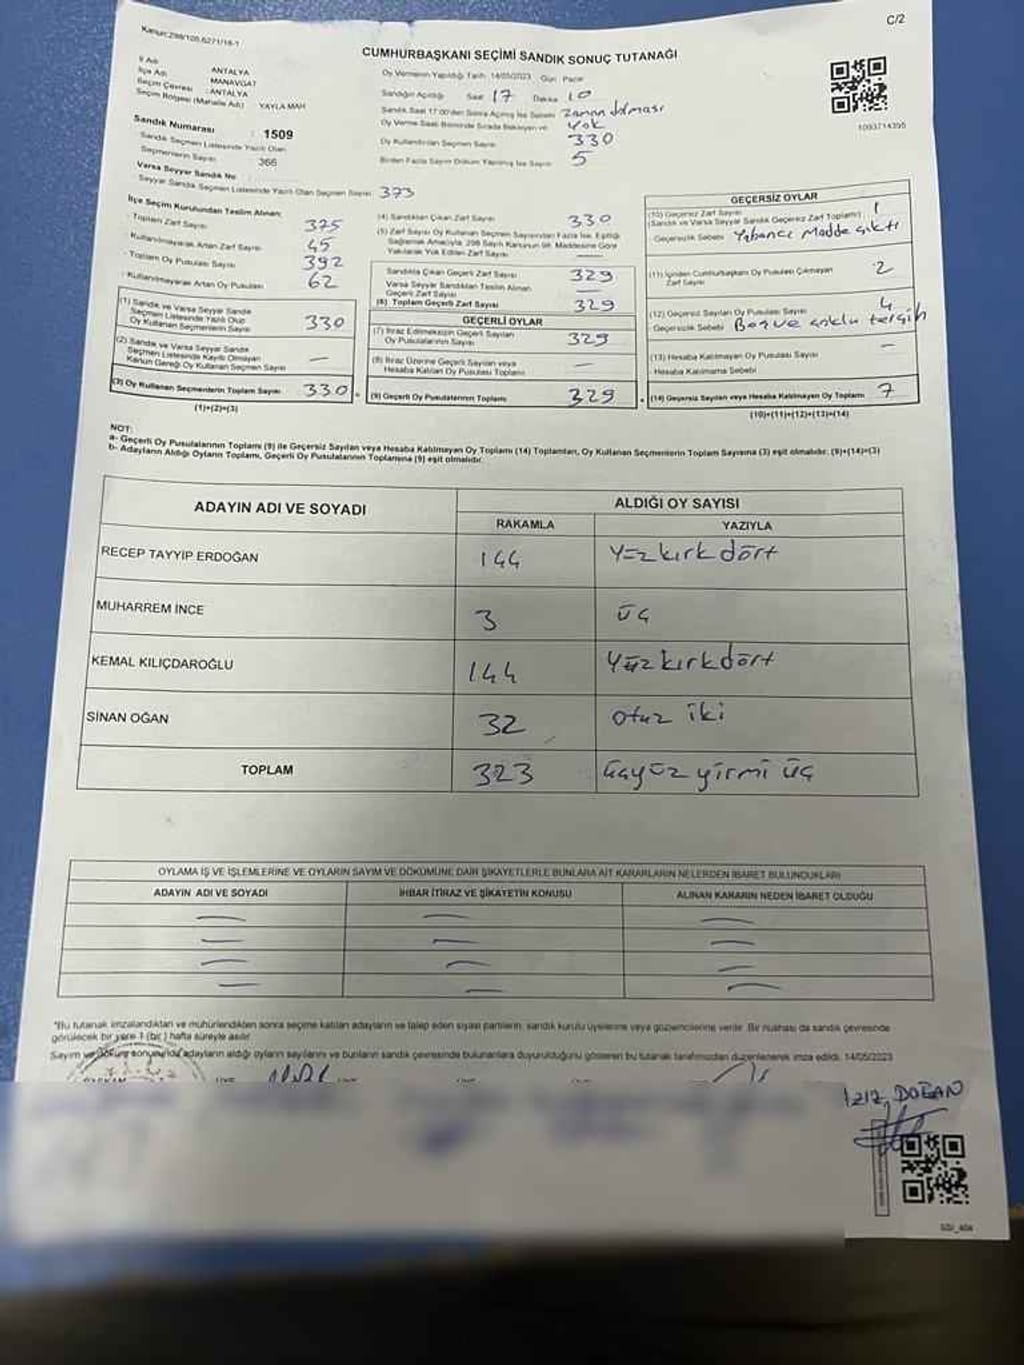 C/2
Kanun:298/105,6271/16-1
CUMHURBAŞKANI SEÇİMİ SANDIK SONUÇ TUTANAĞI
İl Adı : ANTALYA
İlçe Adı : MANAVGAT
Seçim Çevresi : ANTALYA
Seçim Bölgesi (Mahalle Adı) : YAYLA MAH
Sandık Numarası : 1509
Sandık Seçmen Listesinde Yazılı Olan
Seçmenlerin Sayısı : 366
Varsa Seyyar Sandık No
Seyyar Sandık Seçmen Listesinde Yazılı Olan Seçmen Sayısı 373
Oy Vermenin Yapıldığı Tarih: 14/05/2023 Gün: Pazar
Sandığın Açıldığı Saat 17 Dakika 10
Sandık Saat 17:00'den Sonra Açılmış İse Sebebi zaman dolması
Oy Verme Saati Bitiminde Sırada Bekleyen Yok
Oy Kullandırılan Seçmen Sayısı 330
Birden Fazla Sayım Döküm Yapılmış İse Sayısı 5
1093714395
İlçe Seçim Kurulundan Teslim Alınan:
- Toplam Zarf Sayısı 375
- Kullanılmayarak Artan Zarf Sayısı 45
- Toplam Oy Pusulası Sayısı 392
- Kullanılmayarak Artan Oy Pusulası 62
(1) Sandık ve Varsa Seyyar Sandık
Seçmen Listesinde Yazılı Olup
Oy Kullanan Seçmenlerin Sayısı 330
(2) Sandık ve Varsa Seyyar Sandık
Seçmen Listesinde Kayıtlı Olmayan
Kanun Gereği Oy Kullanan Seçmen Sayısı —
(3) Oy Kullanan Seçmenlerin Toplam Sayısı 330
(1)+(2)=(3)
(4) Sandıktan Çıkan Zarf Sayısı 330
(5) Zarf Sayısı Oy Kullanan Seçmen Sayısından Fazla İse, Eşitliği
Sağlamak Amacıyla, 298 Sayılı Kanunun 98. Maddesine Göre
Yakılarak Yok Edilen Zarf Sayısı —
Sandıkta Çıkan Geçerli Zarf Sayısı 329
Varsa Seyyar Sandıktan Teslim Alınan
Geçerli Zarf Sayısı —
(6) Toplam Geçerli Zarf Sayısı 329
GEÇERLİ OYLAR
(7) İtiraz Edilmeksizin Geçerli Sayılan
Oy Pusulalarının Sayısı 329
(8) İtiraz Üzerine Geçerli Sayılan veya
Hesaba Katılan Oy Pusulası Toplamı —
(9) Geçerli Oy Pusulalarının Toplamı 329
GEÇERSİZ OYLAR
(10) Geçersiz Zarf Sayısı 1
(Sandık ve Varsa Seyyar Sandık Geçersiz Zarf Toplamı)
Geçersizlik Sebebi Yabancı Madde çıktı
(11) İçinden Cumhurbaşkanı Oy Pusulası Çıkmayan
Zarf Sayısı 2
(12) Geçersiz Sayılan Oy Pusulası Sayısı 4
Geçersizlik Sebebi Boş ve çoklu tercih
(13) Hesaba Katılmayan Oy Pusulası Sayısı —
- Hesaba Katılmama Sebebi
(14) Geçersiz Sayılan veya Hesaba Katılmayan Oy Toplamı 7
(10)+(11)+(12)+(13)=(14)
NOT:
a- Geçerli Oy Pusulalarının Toplamı (9) ile Geçersiz Sayılan veya Hesaba Katılmayan Oy Toplamı (14) Toplamları, Oy Kullanan Seçmenlerin Toplam Sayısına (3) eşit olmalıdır. (9)+(14)=(3)
b- Adayların Aldığı Oyların Toplamı, Geçerli Oy Pusulalarının Toplamına (9) eşit olmalıdır.
ADAYIN ADI VE SOYADI ALDIĞI OY SAYISI
RAKAMLA YAZIYLA
RECEP TAYYİP ERDOĞAN 144 Yüz kırk dört
MUHARREM İNCE 3 üç
KEMAL KILIÇDAROĞLU 144 Yüz kırk dört
SİNAN OĞAN 32 otuz iki
TOPLAM 323 üçyüz yirmi üç
OYLAMA İŞ VE İŞLEMLERİNE VE OYLARIN SAYIM VE DÖKÜMÜNE DAİR ŞİKAYETLERLE BUNLARA AİT KARARLARIN NELERDEN İBARET BULUNDUKLARI
ADAYIN ADI VE SOYADI İHBAR İTİRAZ VE ŞİKAYETİN KONUSU ALINAN KARARIN NEDEN İBARET OLDUĞU
— — —
— — —
— — —
— — —
*Bu tutanak imzalandıktan ve mühürlendikten sonra seçime katılan adayların ve talep eden siyasi partilerin, sandık kurulu üyelerine veya gözlemcilerine verilir. Bir nüshası da sandık çevresinde
görülecek bir yere 1 (bir) hafta süreyle asılır.
Sayım ve döküm sonucunda adayların aldığı oyların sayılarını ve bunların sandık çevresinde bulunanlara duyurulduğunu gösteren bu tutanak tarafımızdan düzenlenerek imza edildi. 14/05/2023
DOĞAN